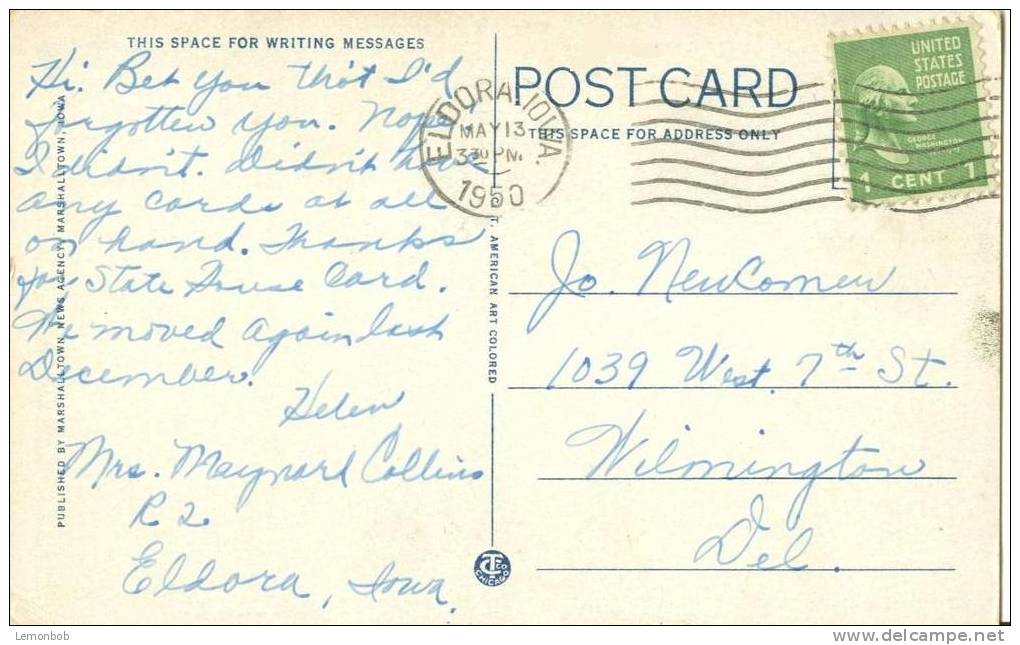 THIS SPACE FOR WRITING MESSAGES
Hi. Bet you that I'd
forgotten you. Nope,
I didn't. Didn't have
any cards at all
on hand. Thanks
for State House Card.
We moved again last
December.
Helen
Mrs. Maynard Collins
R 2
Eldora, Iowa.
PUBLISHED BY MARSHALLTOWN NEWS AGENCY, MARSHALLTOWN, IOWA
C. T. AMERICAN ART COLORED
CHICAGO
POST CARD
THIS SPACE FOR ADDRESS ONLY
ELDORA, IOWA
MAY 13
3 30 PM
1950
UNITED
STATES
POSTAGE
GEORGE
WASHINGTON
1 CENT 1
Jo. Newcomer
1039 West 7th St.
Wilmington
Del.
Lemonbob
www.delcampe.net